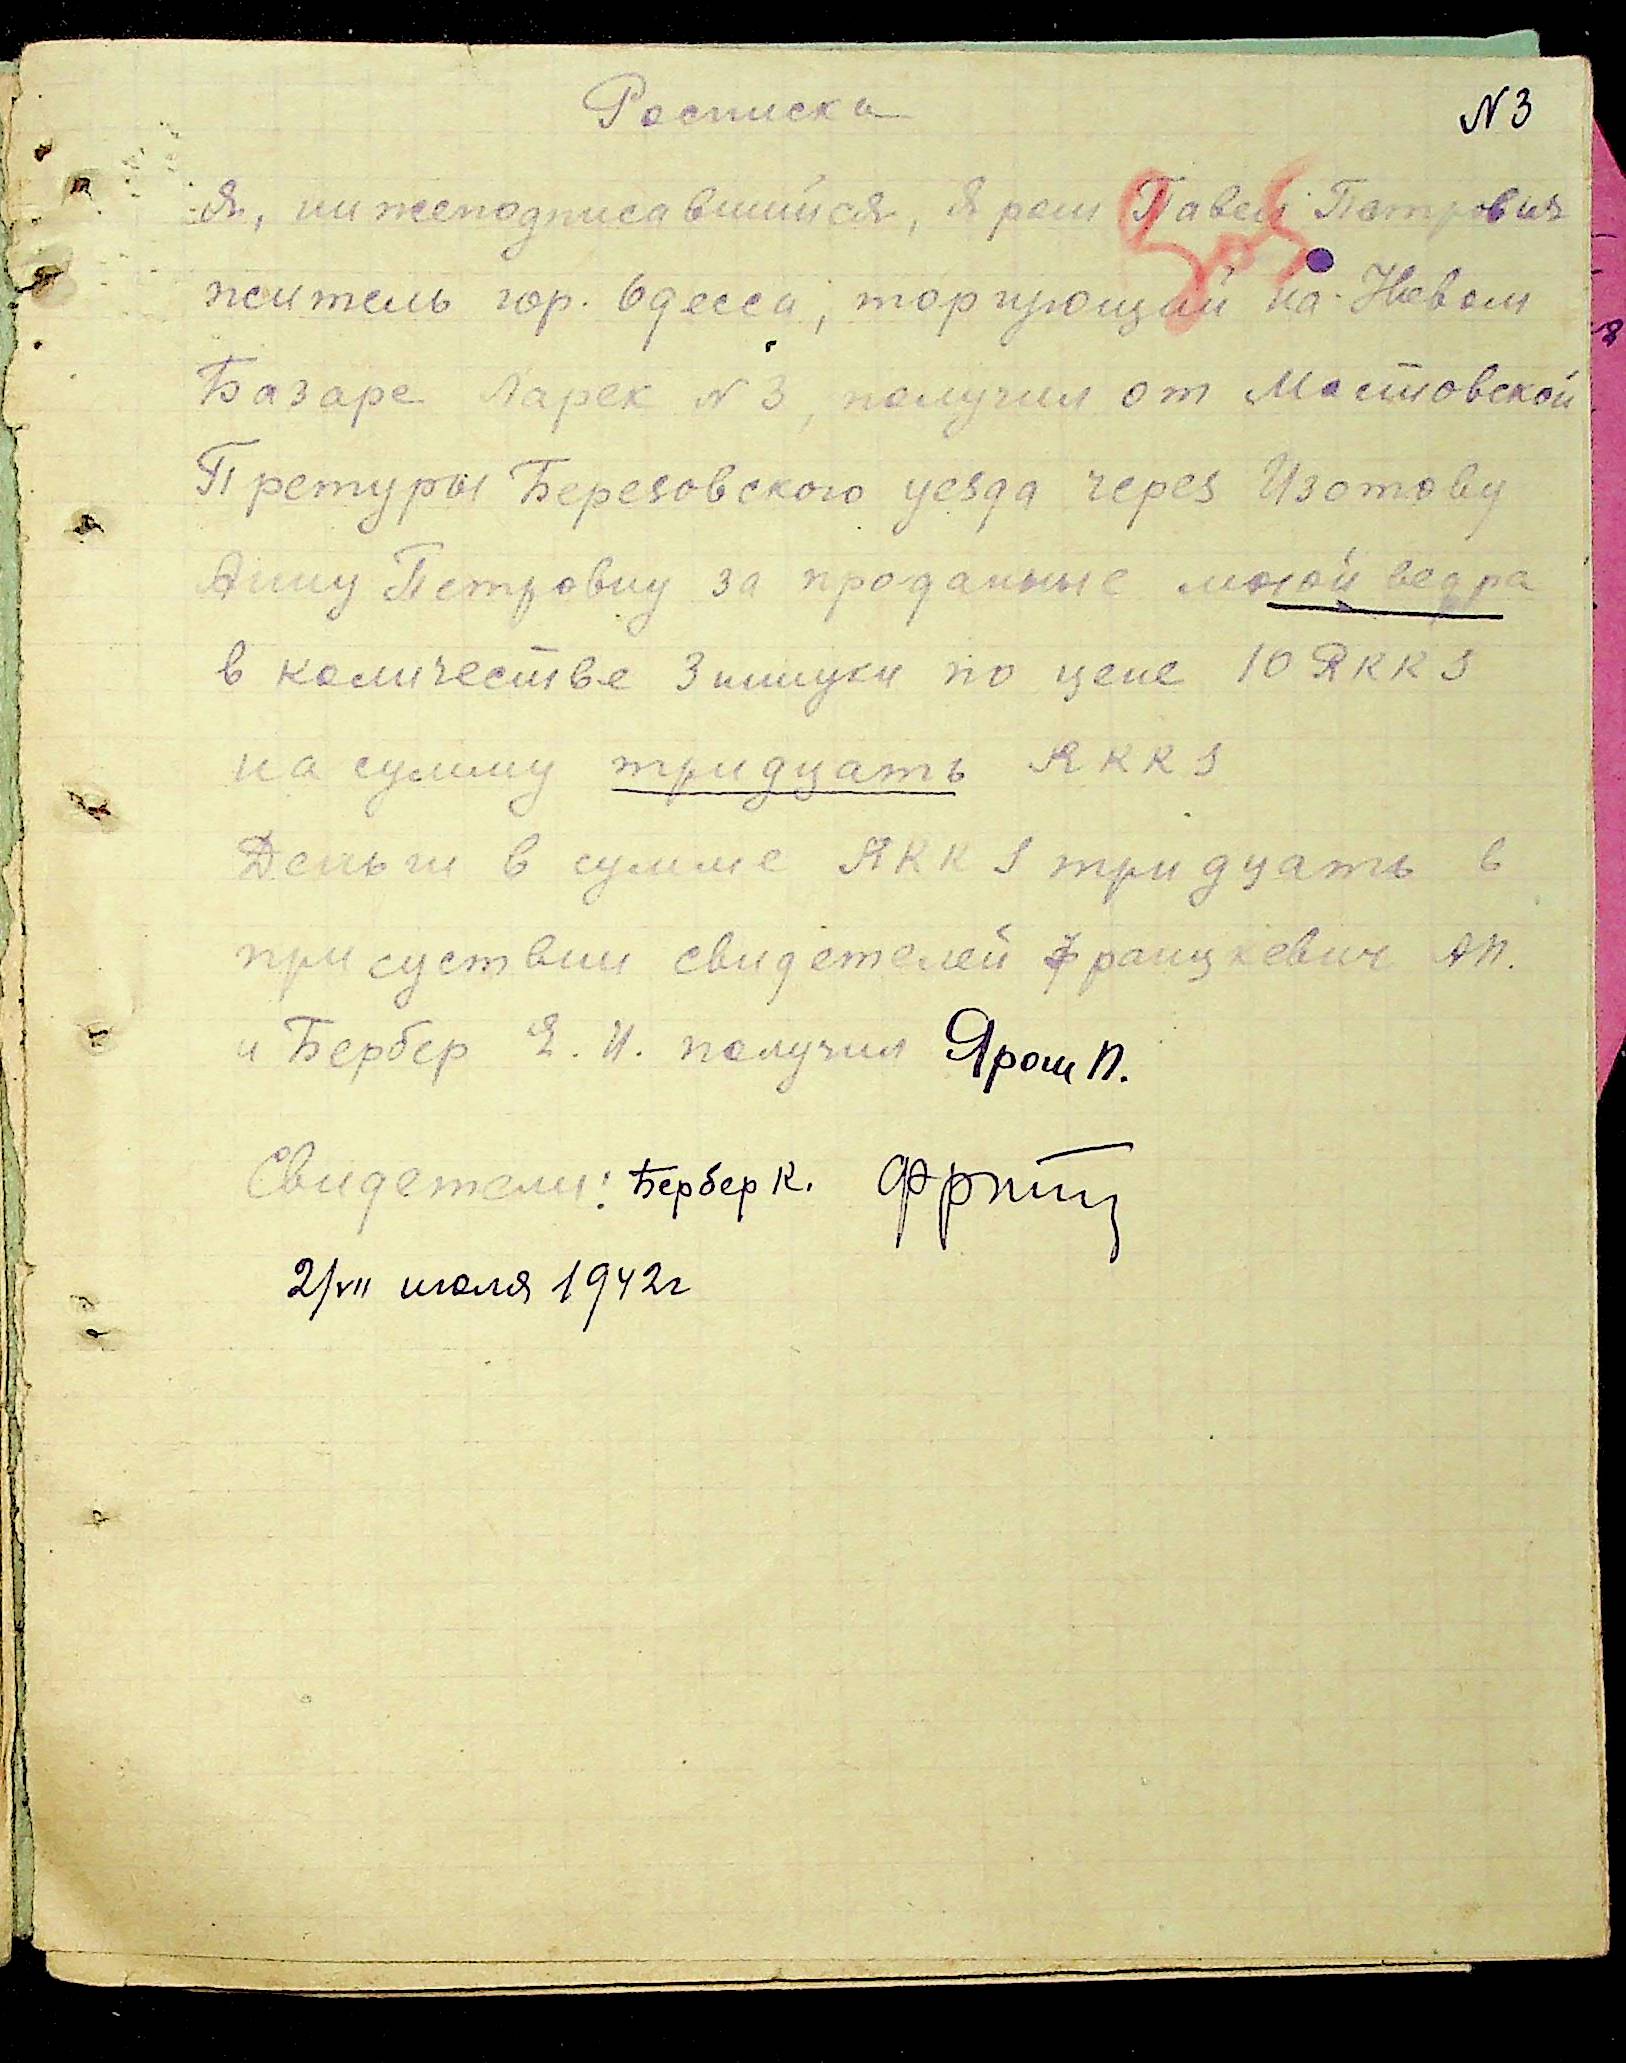 Росписка
N 3
Я, нижеподписавшийся, Ярош Павел Петрович
житель гор. Одесса, торгующий на Новом
Базаре Ларек N 3, получил от Мостовской
Претуры Березовского уезда через Изотову
Анну Петровну за проданные мной ведра
в количестве 3 штуки по цене 10 RKKS
на сумму тридцать RKKS
Деньги в сумме RKKS тридцать в
присуствии свидетелей Францкевич АП.
и Бербер Я. И. получил Ярош П.
Свидетели: Бербер К.
2/VII июля 1942г